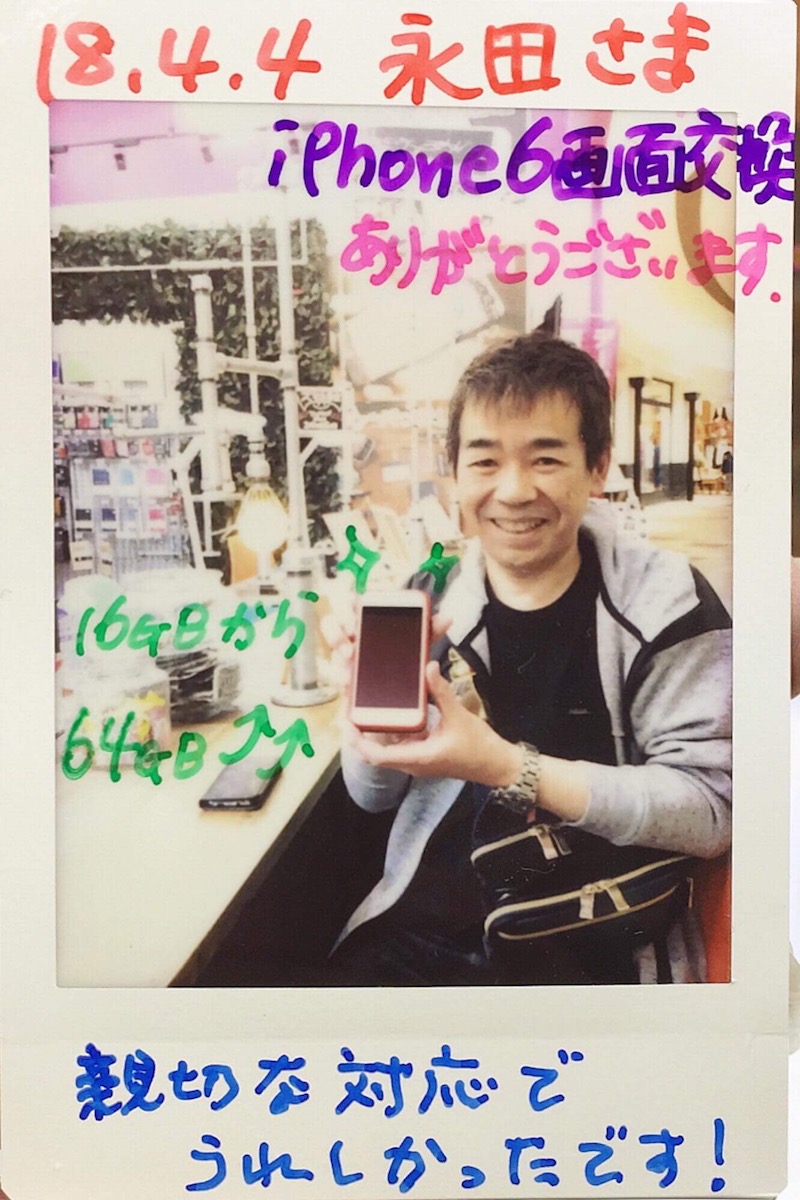 18.4.4 永田さま
iPhone6画面交換
ありがとうございます.
16GBから
64GB↑↑
親切な対応で
うれしかったです!